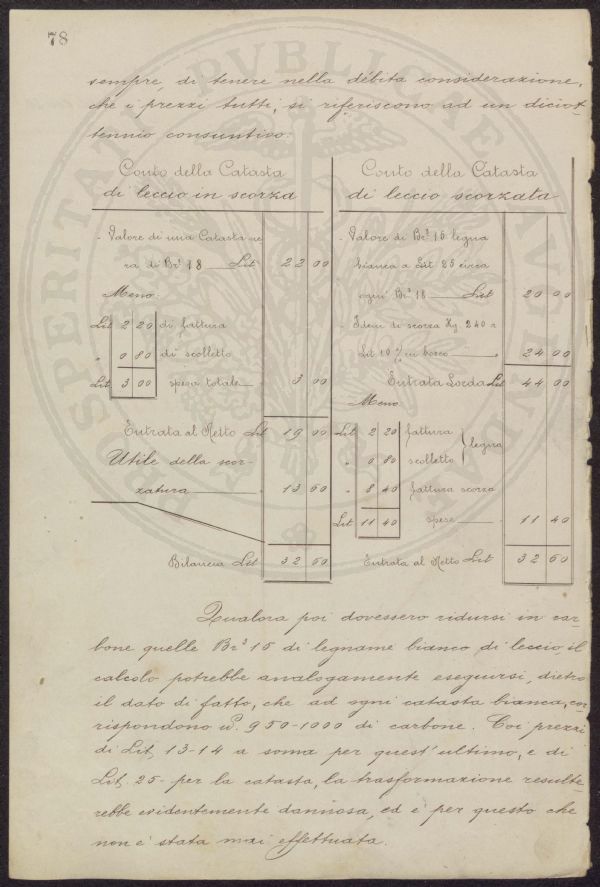 78
sempre, di tenere nella débita considerazione,
che i prezzi tutti, si riferiscono ad un diciot-
tennio consuntivo:
Conto della Catasta
di leccio in scorza
- Valore di una Catasta ne
ra di Br.ª 18 Lit 22 00
Meno:
Lit 2 20 di fattura
" 0 80 di scolletto
Lit 3 00 spesa totale 3 00
Entrata al Netto Lit 19 00
Utile della scor-
zatura 13 60
Bilancia Lit 32 60
Conto della Catasta
di leccio scorzata
- Valore di Br.ª 15 legna
bianca a Lit 25 circa
ogni Br.ª 18 Lit 20 00
- Idem di scorza Kg. 240 a
Lit 10 % in bosco 24 00
Entrata Lorda Lit 44 00
Meno
Lit 2 20 fattura
" 0 80 scolletto
legna
" 8 40 fattura scorza
Lit 11 40 spese 11 40
Entrata al Netto Lit 32 60
Qualora poi dovessero ridursi in car-
bone quelle Br.ª 15 di legname bianco di leccio, il
calcolo potrebbe analogamente eseguirsi, dietro
il dato di fatto, che ad ogni catasta bianca, cor
rispondono 950-1000 di carbone. Coi prezzi
di Lit. 13-14 a soma per quest'ultimo, e di
Lit. 25- per la catasta, la trasformazione resulte-
rebbe evidentemente dannosa, ed è per questo che
non è stata mai effettuata.
PROSPERITATI PVBLICAE AVGENDAE